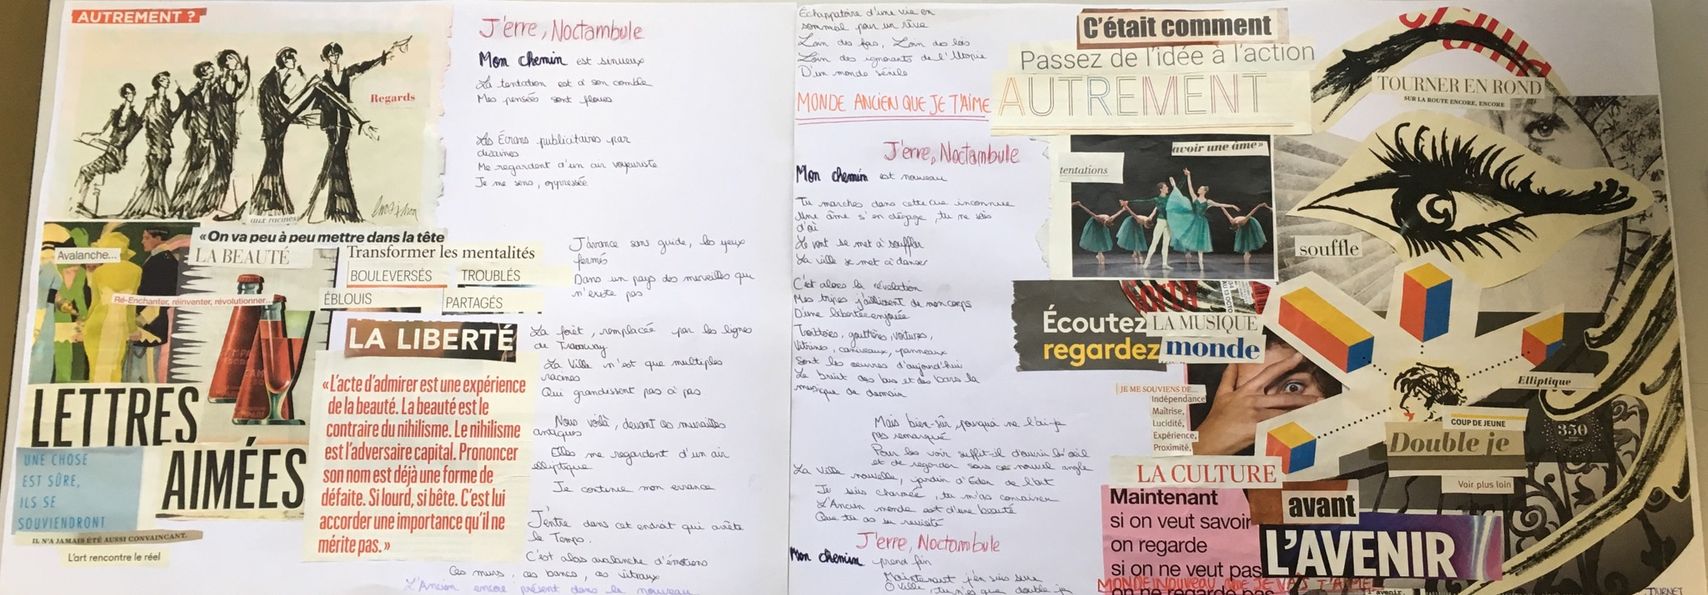 AUTREMENT ?
Regards
aux racines
« On va peu à peu mettre dans la tête
LA BEAUTÉ
Avalanche...
Ré-Enchanter, réinventer, révolutionner...
Transformer les mentalités
BOULEVERSÉS
TROUBLÉS
ÉBLOUIS
PARTAGÉS
LA LIBERTÉ
« L'acte d'admirer est une expérience
de la beauté. La beauté est le
contraire du nihilisme. Le nihilisme
est l'adversaire capital. Prononcer
son nom est déjà une forme de
défaite. Si lourd, si bête. C'est lui
accorder une importance qu'il ne
mérite pas. »
LETTRES
AIMÉES
UNE CHOSE
EST SÛRE,
ILS SE
SOUVIENDRONT
IL N'A JAMAIS ÉTÉ AUSSI CONVAINCANT.
L'art rencontre le réel
J'erre, Noctambule
Mon chemin est sinueux
La tentation est à son comble
Mes pensées sont floues
Les Écrans publicitaires par
dizaines
Me regardent d'un air voyeuriste
Je me sens, oppressée
J'avance sans guide, les yeux
fermés
Dans un pays des merveilles qui
n'existe pas
La forêt, remplacée par les lignes
de Tramway
La Ville n'est que multiples
racines
Qui grandissent pas à pas
Nous voilà, devant ces murailles
antiques
Elles me regardent d'un air
elliptique
Je continue mon errance
J'entre dans cet endroit qui arrête
le Temps.
C'est alors avalanche d'émotions
Ces murs, ces bancs, ces vitraux
L'Ancien encore présent dans le nouveau
Échappatoire d'une vie en
sommeil par un rêve
Loin des fas, Loin des lois
Loin des ignorants de l'Utopie
D'un monde sénile
MONDE ANCIEN QUE JE T'AIME
J'erre, Noctambule
Mon chemin est nouveau
Tu marches dans cette rue inconnue
Une âme s'en dégage, tu ne sais
d'où
Le vent se met à souffler
La ville se met à danser
C'est alors la révélation
Mes tripes jaillissent de mon corps
D'une libertée enjouée
Trottoirs, gouttières, voitures,
Vitrines, caniveaux, panneaux
Sont les œuvres d'aujourd'hui
Le bruit des bus et des bars la
musique de demain
Mais bien-sûr, pourquoi ne l'ai-je
pas remarqué
Pour les voir suffit-il d'ouvrir l'œil
et de regarder sous ce nouvel angle
La Ville nouvelle, jardin d'Éden de l'art
Je suis charmée, tu m'as convaincue
L'Ancien monde est d'une beauté
Que tu as su revisité
J'erre, Noctambule
Mon chemin prend fin
Maintenant j'en suis sûre
O Ville, tu n'es que double je
MONDE NOUVEAU QUE JE VAIS T'AIMER
C'était comment
Passez de l'idée à l'action
AUTREMENT
TOURNER EN ROND
SUR LA ROUTE ENCORE, ENCORE
avoir une âme »
tentations
souffle
Écoutez
regardez
LA MUSIQUE
monde
JE ME SOUVIENS DE...
Indépendance
Maîtrise,
Lucidité,
Expérience,
Proximité,
Elliptique
COUP DE JEUNE
Double je
Voir plus loin
350
LA CULTURE
Maintenant
si on veut savoir
on regarde
si on ne veut pas
on ne regarde pas
avant
L'AVENIR
l'avenir.